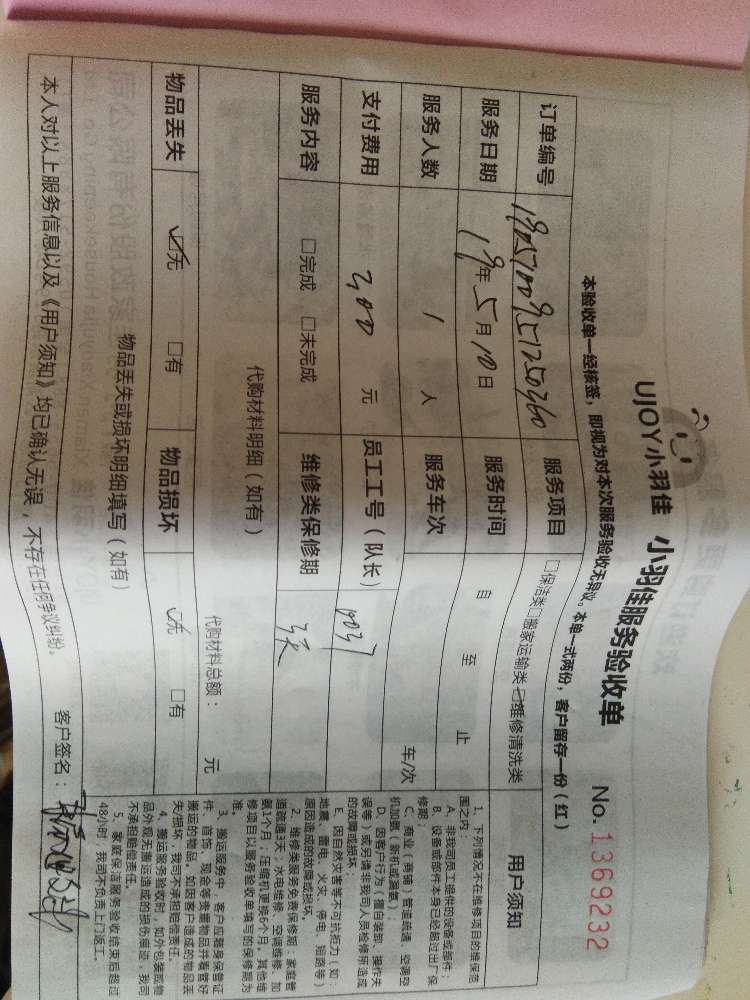 UJOY小羽佳 小羽佳服务验收单 No.1369232
本验收单一经核签，即视为对本次服务验收无异议。本单一式两份，客户留存一份（红）
订单编号 服务项目 □保洁类□搬家运输类☑维修清洗类
服务日期 19年5月10日 服务时间 自 至 止
服务人数 1 人 服务车次 车/次
支付费用 200 元 员工工号（队长）
服务内容 □完成 □未完成 维修类保修期 3天
代购材料明细（如有） 代购材料总额： 元
物品丢失 ☑无 □有 物品损坏 ☑无 □有
物品丢失或损坏明细填写（如有）
本人对以上服务信息以及《用户须知》均已确认无误，不存在任何争议纠纷。 客户签名：
用户须知
1、下列情况不在维修项目的维保范
围之内：
A、非我司员工提供的设备或部件；
B、设备或部件本身已经超过出厂保
修期；
C、商业（商铺）管道疏通、空调空
机加氨（新机或漏氨）；
D、因客户行为（擅自装卸、操作失
误等）或另请非我司人员检修所造成
的故障或损坏；
E、因自然灾害等不可抗拒力（如：
地震、雷电、火灾、停电、短路等）
原因造成的故障或损坏。
2、维修类服务免费保修期：家庭管
道疏通3天，水电维修、空调维修、加
氨1个月；压缩机更换6个月，其他维
修项目以服务验收单填写的保修期为
准。
3、搬运服务中，客户应随身保管证
件、首饰、现金等贵重物品并看管好
搬运的物品，如因客户造成的物品丢
失/损坏，我司不承担赔偿责任。
4、搬运服务验收时，如外包装或物
品外观无搬运造成的损伤痕迹，我司
不承担赔偿责任。
5、家庭保洁服务验收结束后超过
48小时，我司不负责上门返工。